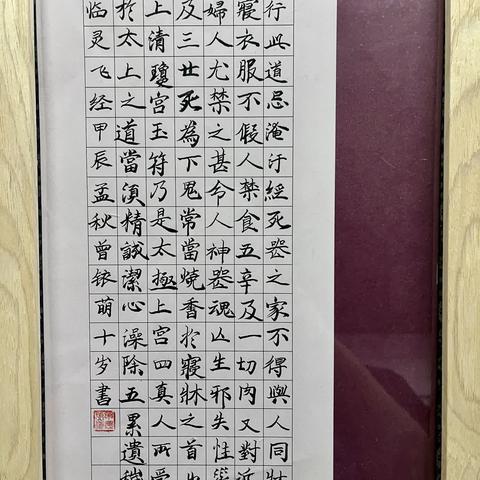 行此道忌淹汙經死喪之家不得與人同牀
寢衣服不假人禁食五辛及一切肉又對近
婦人尤禁之甚令人神喪魂亡生邪失性災
及三世死為下鬼常當燒香於寢牀之首也
上清瓊宮玉符乃是太極上宮四真人所受
於太上之道當須精誠潔心澡除五累遺穢
临灵飞经甲辰孟秋曾铱萌十岁书